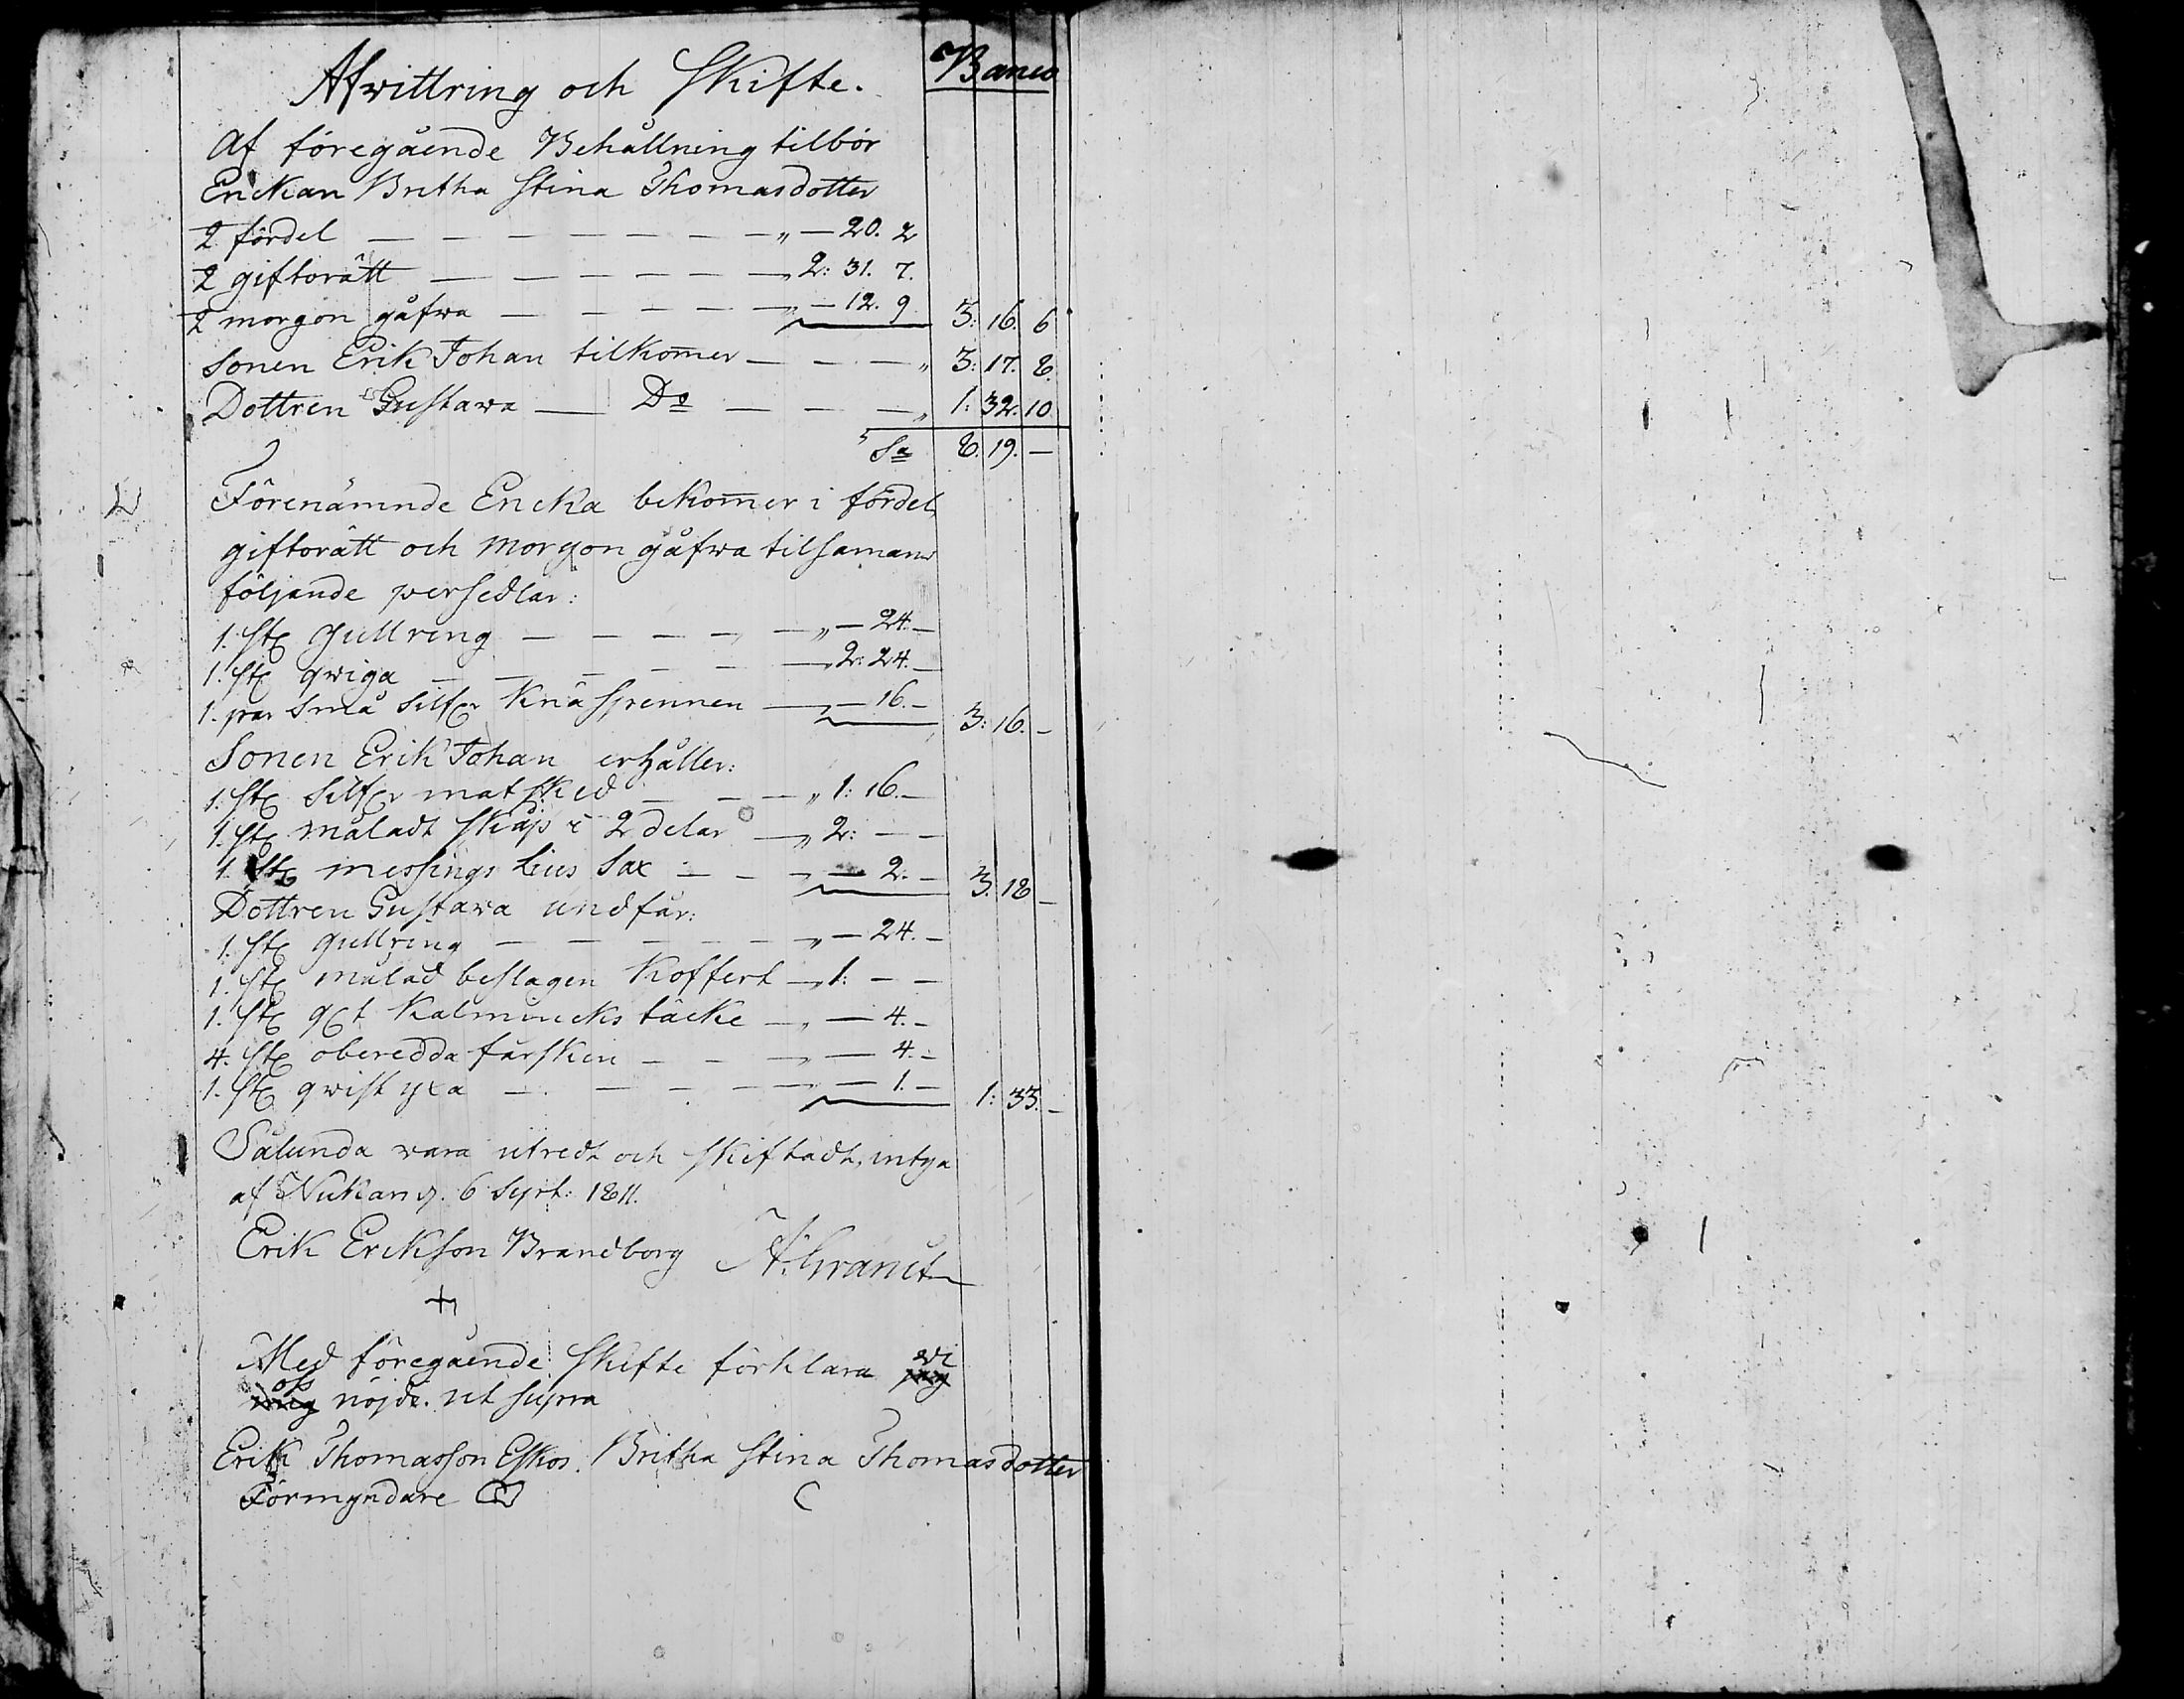 Afwittring och Skifte. Banco
Af föregående Behållning tilbör
Enckan Britha Stina Thomasdotter
2 fördel — — — — — — — „ — 20. 2
2 giftorätt — — — — — — 2: 31. 7.
2 morgon gåfwa — — — — — „ — 12. 9. 3: 16. 6
Sonen Erik Johan tilkommer — — — „ 3: 17. 8.
Dottren Gustawa — Do — — — „ 1: 32. 10
Sa 8. 19. —
Förenämnde Encka bekommer i fördel,
giftorätt och morgon gåfwa tilsamans
följande persedlar:
1. St. Gullring — — — — — „ — 24. —
1. St. qwiga — — — — — 2: 24. —
1. par små silfer Knä spennen — — 16. — 3: 16. —
Sonen Erik Johan erhåller:
1. St. Silfer matsked — — — „ 1: 16. —
1. St. måladt skåp i 2 delar — „ 2: — —
1. St. messings Lius Sax — — — — 2. — 3. 18 —
Dottren Gustawa undfår:
1. St. Gullring — — — — — „ — 24. —
1. St. målad beslagen Koffert — „ 1: — —
1. St. g:t Kalmincks täcke — „ — 4. —
4. St. oberedda fårskin — — — — 4. —
1. St. qwist yxa — — — — — — 1. — 1: 33. —
Sålunda wara utredt och skiftadt, intyga
af Wukan d. 6 Sept: 1811.
Erik Erickson Brandborg
Med föregående Skifte förklara wi jag
oss mig nöjde. ut supra
Erik Thomasson Eskos. Britha Stina Thomasdotter
Förmyndare